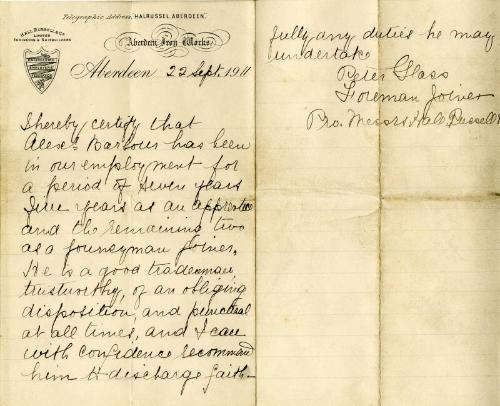 Telegraphic Address, HALRUSSEL, ABERDEEN.
HALL RUSSELL & Co
LIMITED
ENGINEERS & SHIPBUILDERS
Aberdeen Iron Works
Aberdeen 22 Sept. 1911
I hereby certify that
Alexr Barbour has been
in our employment for
a period of seven years
five years as an apprentice
and the remaining two
as a journeyman joiner.
He is a good tradesman,
trustworthy, of an obliging
disposition, and punctual
at all times, and I can
with confidence recommend
him to discharge faith-
fully any duties he may
undertake
Peter Glass
Foreman Joiner
Pro. Messrs Hall Russell &